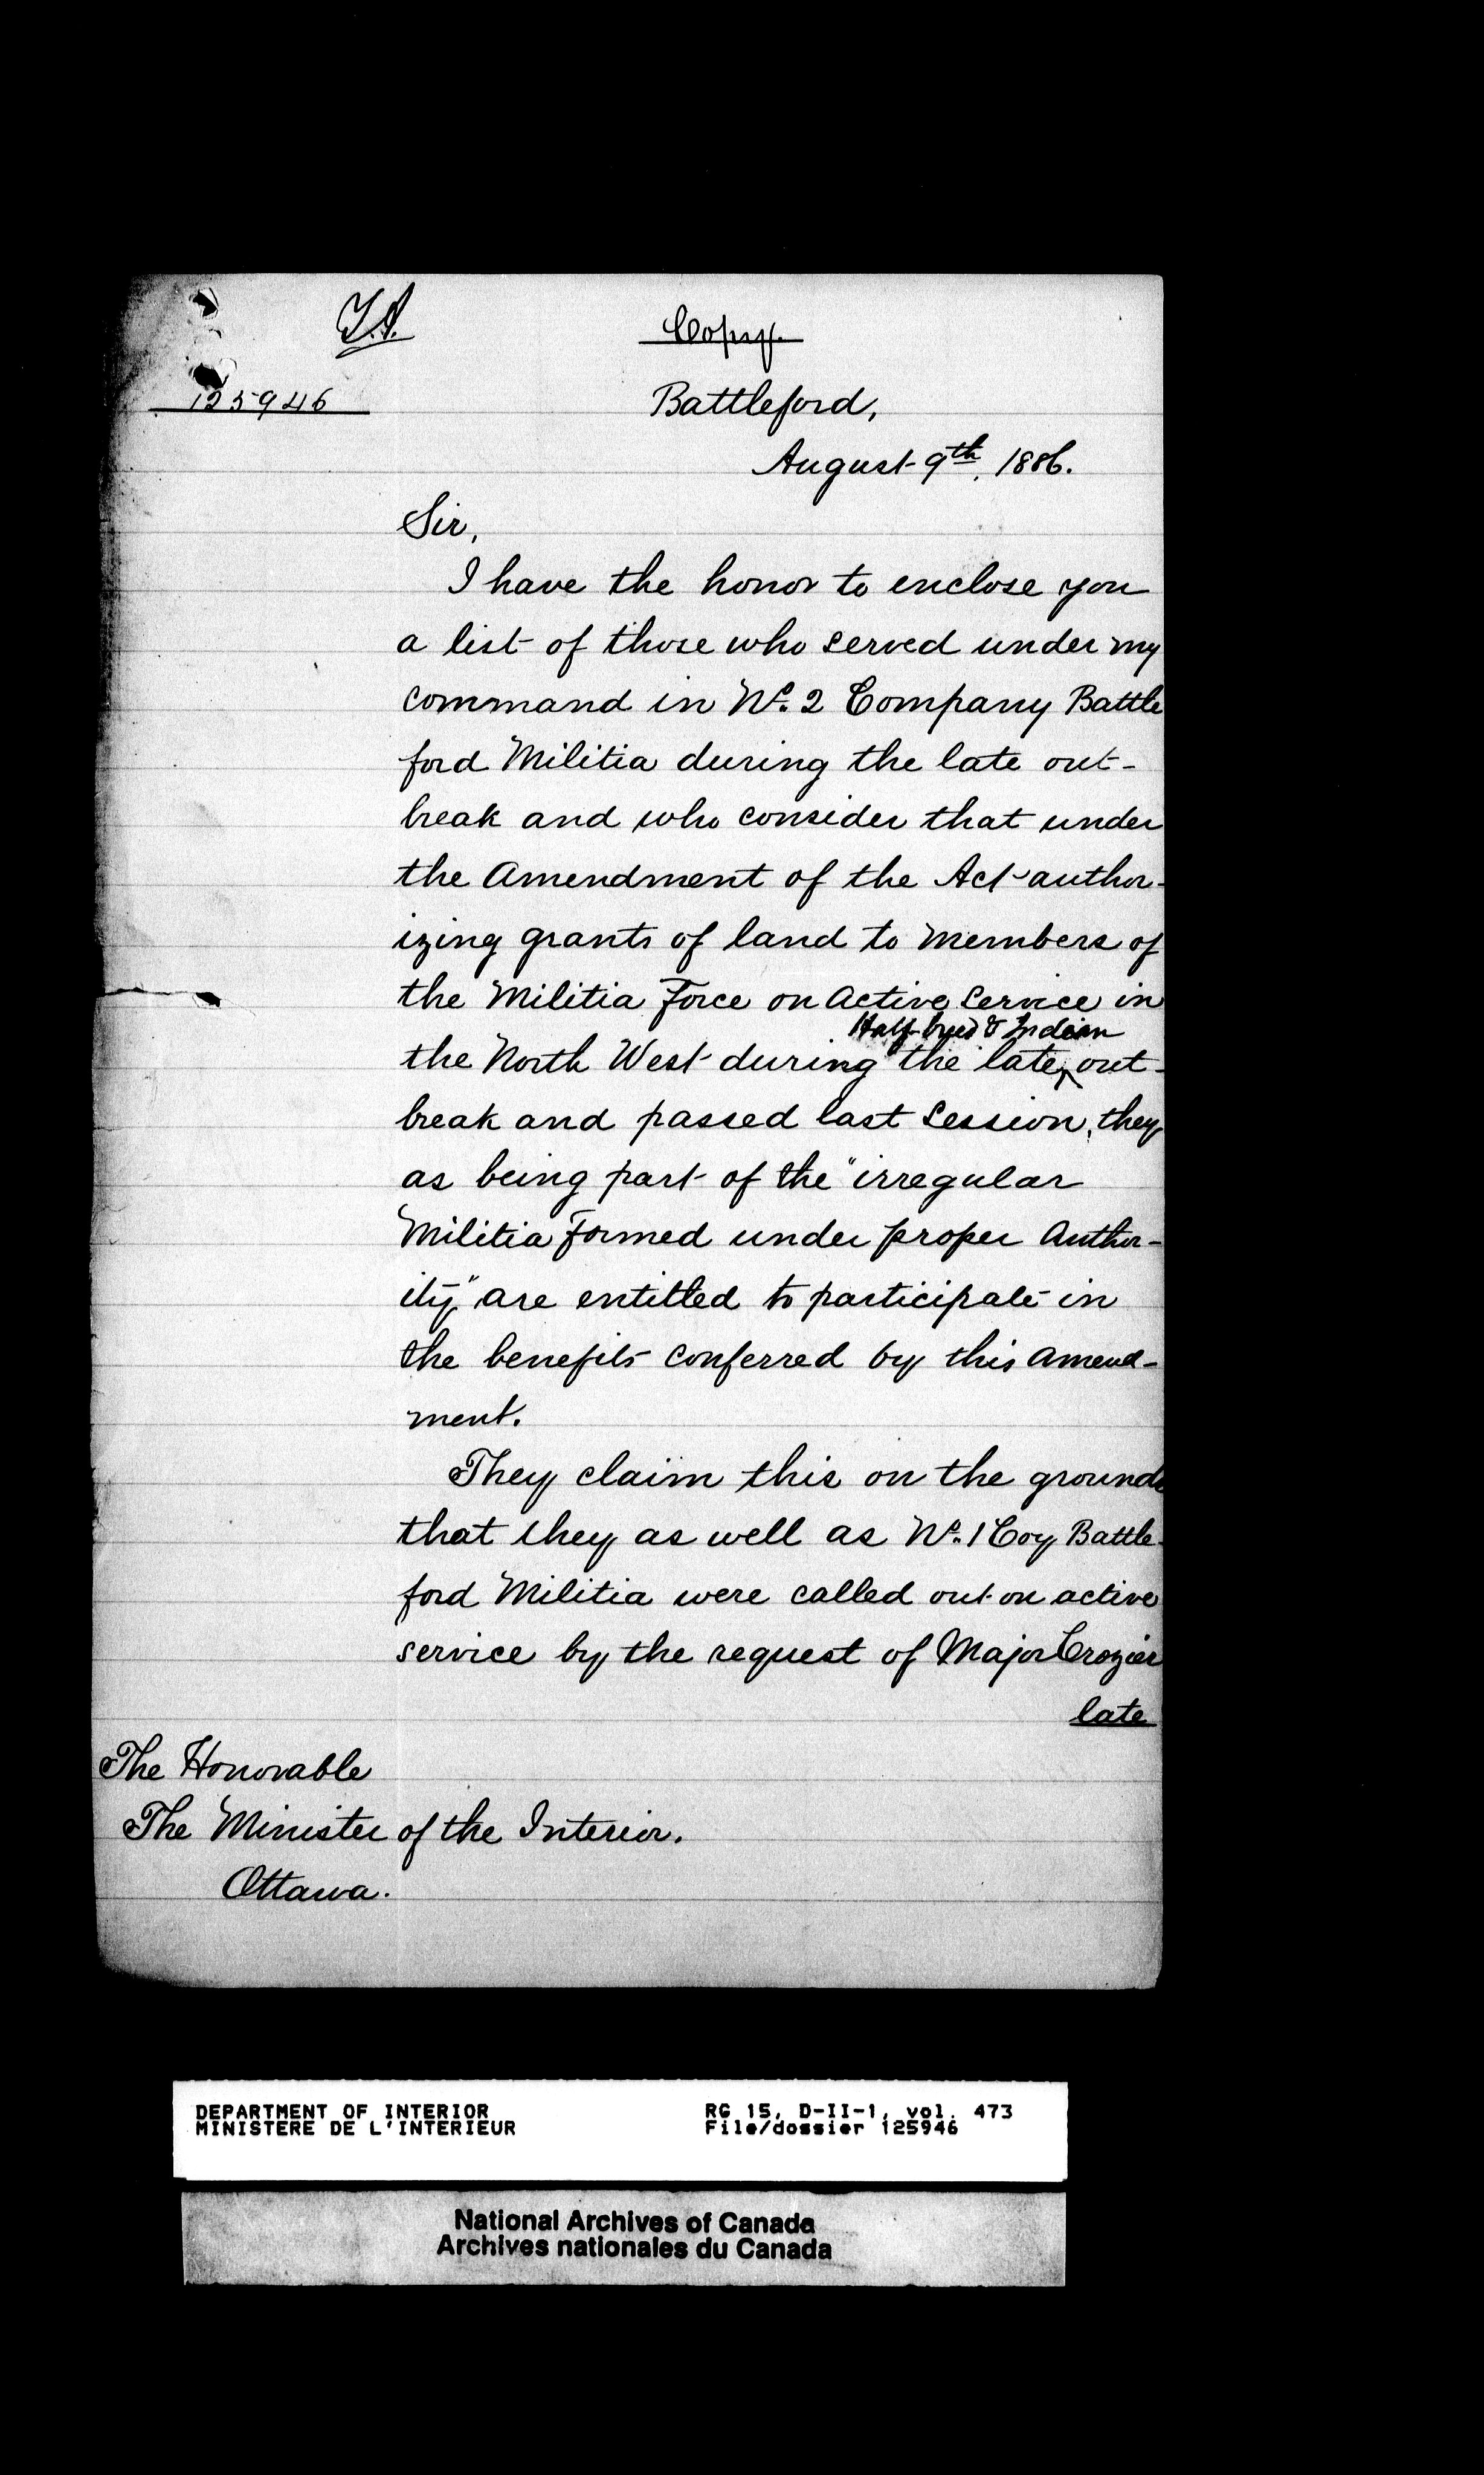 T.A.
Copy.
125946
Battleford,
August 9th, 1886.
Sir,
I have the honor to enclose you
a list of those who served under my
command in No. 2 Company Battle
ford Militia during the late out-
break and who consider that under
the Amendment of the Act author-
izing grants of land to members of
the Militia Force on Active Service in
Half-breed & Indian
the North West during the late out-
break and passed last Session, they
as being part of the "irregular
Militia Formed under proper Author-
ity," are entitled to participate in
the benefits conferred by this Amend-
ment.
They claim this on the grounds
that they as well as No. 1 Coy Battle-
ford Militia were called out on active
service by the request of Major Crozier
late
The Honorable
The Minister of the Interior.
Ottawa.
DEPARTMENT OF INTERIOR RG 15, D-II-1, vol. 473
MINISTERE DE L'INTERIEUR File/dossier 125946
National Archives of Canada
Archives nationales du Canada